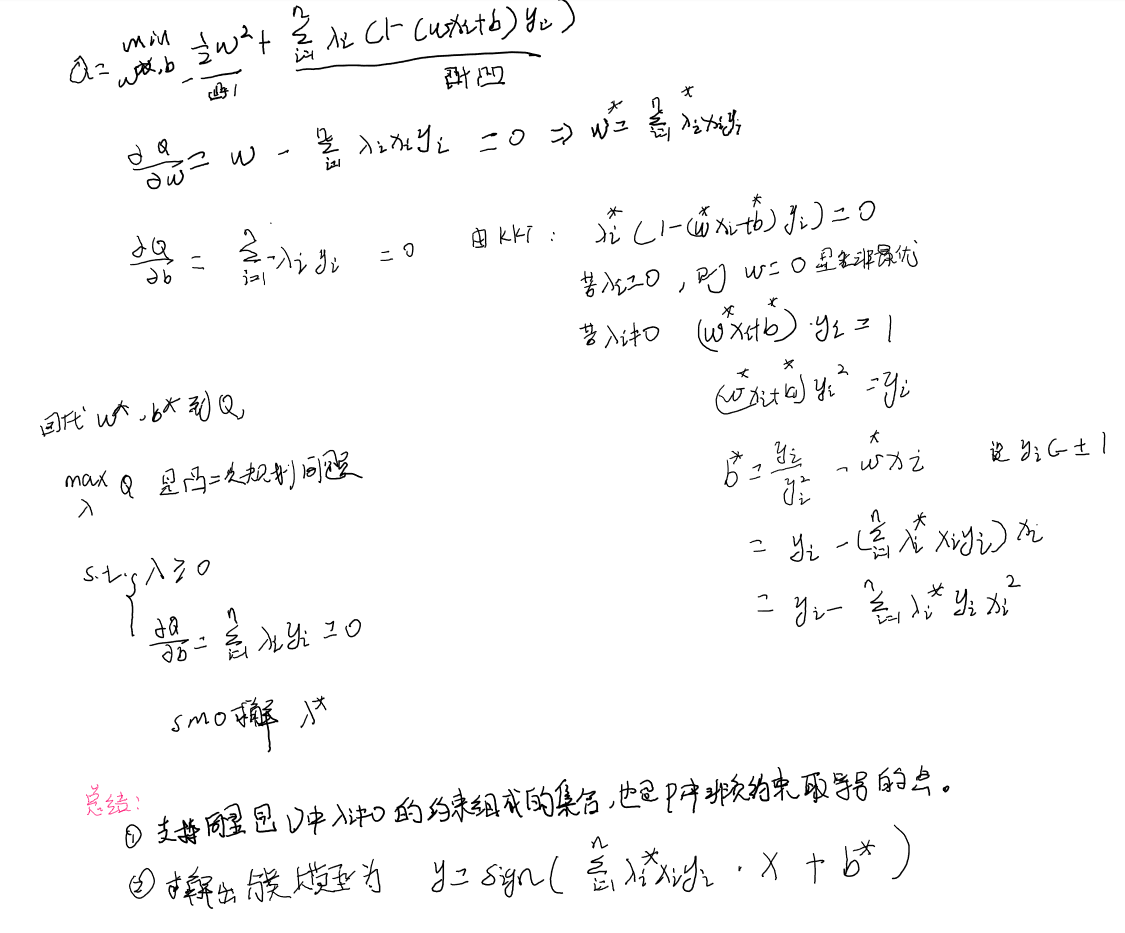 Q = min_{w,b} \frac{1}{2}w^2 + \sum_{i=1}^{n} λ_i (1 - (wx_i+b) y_i)
\frac{∂Q}{∂w} = w - \sum_{i=1}^{n} λ_i x_i y_i = 0 ⇒ w^* = \sum_{i=1}^{n} λ_i^* x_i y_i
\frac{∂Q}{∂b} = \sum_{i=1}^{n} -λ_i y_i = 0
由KKT: λ_i^* (1-(w^* x_i+b^*) y_i) = 0
若λ_i=0, 则 w=0 显然非最优
若λ_i≠0 (w^* x_i+b^*)·y_i = 1
(w^* x_i+b^*) y_i^2 = y_i
b^* = \frac{y_i}{y_i^2} - w^* x_i 设 y_i ∈ ±1
= y_i - (\sum_{i=1}^{n} λ_i^* x_i y_i) x_i
= y_i - \sum_{i=1}^{n} λ_i^* y_i x_i^2
回代 w^*, b^* 到 Q
max_λ Q 是凸二次规划问题
s.t. { λ ≥ 0
\frac{∂Q}{∂b} = \sum_{i=1}^{n} λ_i y_i = 0
SMO求解 λ^*
总结:
① 支持向量是D中λ_i≠0的约束组成的集合,也是P中约束取等号的点。
② 求解出模型为 y = sign( \sum_{i=1}^{n} λ_i^* x_i y_i · x + b^* )